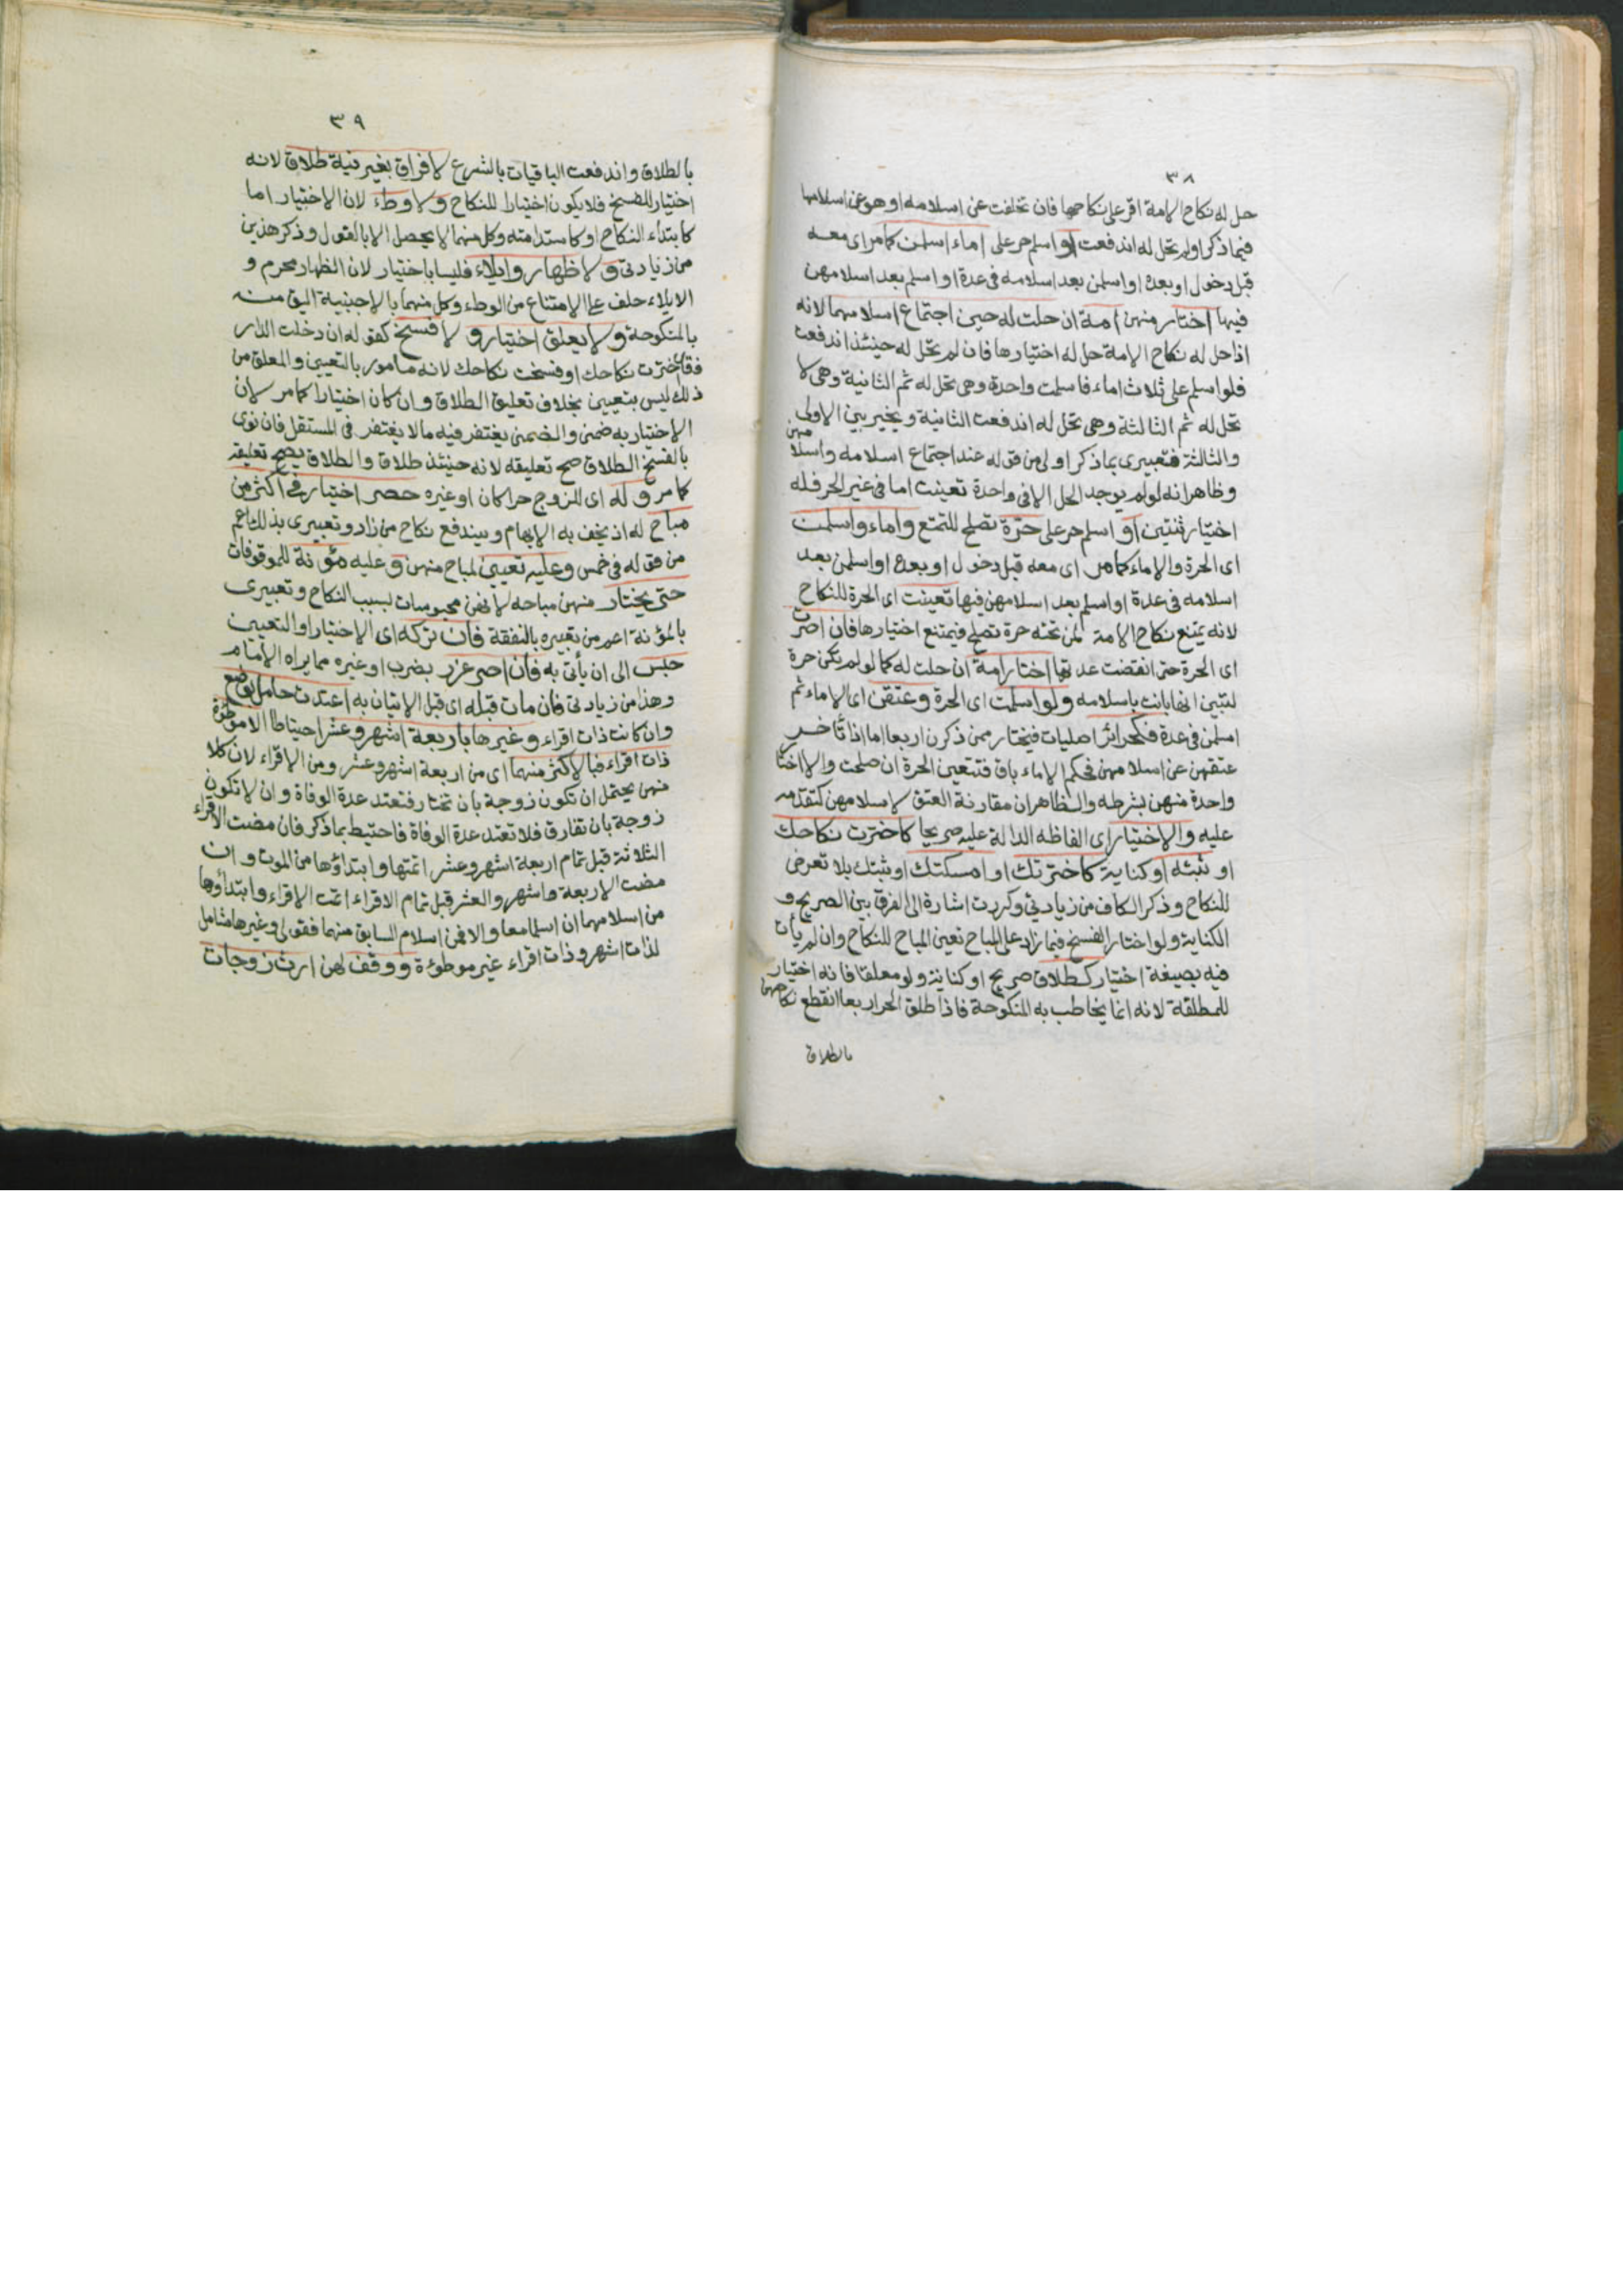 ٣٨
حل له نكاح الامة اقر على نكاحها فان تخلفت عن اسلامه او هو عن اسلامها
فيما ذكر اولم تحل له اندفعت او اسلم حر على اماء اسلمن كما مر اى معه
قبل دخول او بعده او اسلمن بعد اسلامه فى عدة او اسلم بعد اسلامهن
فيها اختار منهن امة ان حلت له حين اجتماع اسلامهما لانه
اذا حل له نكاح الامة حل له اختيارها فان لم تحل له حينئذ اندفعت
فلو اسلم على ثلاث اماء فاسلمت واحدة وهى تحل له ثم الثانية وهى لا
تحل له ثم الثالثة وهى تحل له اندفعت الثانية ويخير بين الاولى
والثالثة فتعبيرى بما ذكر اولى من قوله عند اجتماع اسلامه واسلامهن
وظاهر انه لو لم يوجد الحل الا فى واحدة تعينت اما فى غير الحر فله
اختيار ثنتين او اسلم حر على حرة تصلح للتمتع واماء واسلمت
اى الحرة والاماء كما مر اى معه قبل دخول او بعده او اسلمن بعد
اسلامه فى عدة او اسلم بعد اسلامهن فيها تعينت اى الحرة للنكاح
لانه يمتنع نكاح الامة لمن تحته حرة تصلح فيمتنع اختيارها فان اصرت
اى الحرة حتى انقضت عدتها اختار امة ان حلت له كما لو لم تكن حرة
لتبين انها بانت باسلامه ولو اسلمت اى الحرة وعتقن اى الاماء ثم
اسلمن فى عدة فكحرائر اصليات فيختار ممن ذكرن اربعا اما اذا تأخر
عتقهن عن اسلامهن فحكم الاماء باق فتتعين الحرة ان صلحت والا اختار
واحدة منهن بشرطه والظاهر ان مقارنة العتق لاسلامهن كتقدمه
عليه والاختيار اى الفاظه الدالة عليه صريحا كاخترت نكاحك
او ثبته او كناية كاخترتك او امسكتك او ثبتك بلا تعرض
للنكاح وذكر الكاف من زيادتى وكررت اشارة الى الفرق بين الصريح و
الكناية ولو اختار الفسخ فيما زاد على المباح تعين المباح للنكاح وان لم يأت
فيه بصيغة اختيار كطلاق صريح او كناية ولو معلقا فانه اختيار
للمطلقة لانه انما يخاطب به المنكوحة فاذا طلق الحر اربعا انقطع نكاحهن
بالطلاق
٣٩
بالطلاق واندفعت الباقيات بالشرع لا فراق بغير نية طلاق لانه
اختيار للفسخ فلا يكون اختيارا للنكاح ولا وطء لان الاختيار اما
كابتداء النكاح او كاستدامته وكل منهما لا يحصل الا بالقول وذكر هذين
من زيادتى ولا ظهار وايلاء فليسا باختيار لان الظهار محرم و
الايلاء حلف على الامتناع من الوطء وكل منهما بالاجنبية اليق منه
بالمنكوحة ولا يعلق اختيار و لا فسخ كقوله ان دخلت الدار
فقد اخترت نكاحك او فسخت نكاحك لانه مامور بالتعيين والمعلق من
ذلك ليس بتعيين بخلاف تعليق الطلاق وان كان اختيارا كما مر لان
الاختيار به ضمنى والضمنى يغتفر فيه مالا يغتفر فى المستقل فان نوى
بالفسخ الطلاق صح تعليقه لانه حينئذ طلاق والطلاق يصح تعليقه
كما مر وله اى للزوج حرا كان او غيره حصر اختيار فى اكثر من
مباح له اذ يخف به الابهام ويندفع نكاح من زاد وتعبيرى بذلك اعم
من قوله فى خمس وعليه تعيين لمباح منهن وعليه مؤنة للموقوفات
حتى يختار منهن مباحه لانهن محبوسات بسبب النكاح وتعبيرى
بالمؤنة اعم من تعبيره بالنفقة فان تركه اى الاختيار او التعيين
حبس الى ان يأتى به فان اصر عزر بضرب او غيره مما يراه الامام
وهذا من زيادتى فان مات قبله اى قبل الاتيان به اعتدت حامل بوضع
وان كانت ذات اقراء وغيرها باربعة اشهر وعشر احتياطا الا موطوءة
ذات اقراء فبالاكثر منهما اى من اربعة اشهر وعشر ومن الاقراء لان كلا
منهن يحتمل ان تكون زوجة بان تختار فتعتد عدة الوفاة وان لا تكون
زوجة بان تفارق فلا تعتد عدة الوفاة فاحتيط بما ذكر فان مضت الاقراء
الثلاثة قبل تمام اربعة اشهر وعشر اتمتها وابتداؤها من الموت وان
مضت الاربعة واشهر والعشر قبل تمام الاقراء اتمت الاقراء وابتداؤها
من اسلامهما ان اسلما معا والا فمن اسلام السابق منهما فقولى وغيرها شامل
لذات اشهر وذات اقراء غير موطوءة ووقف لهن ارث زوجات